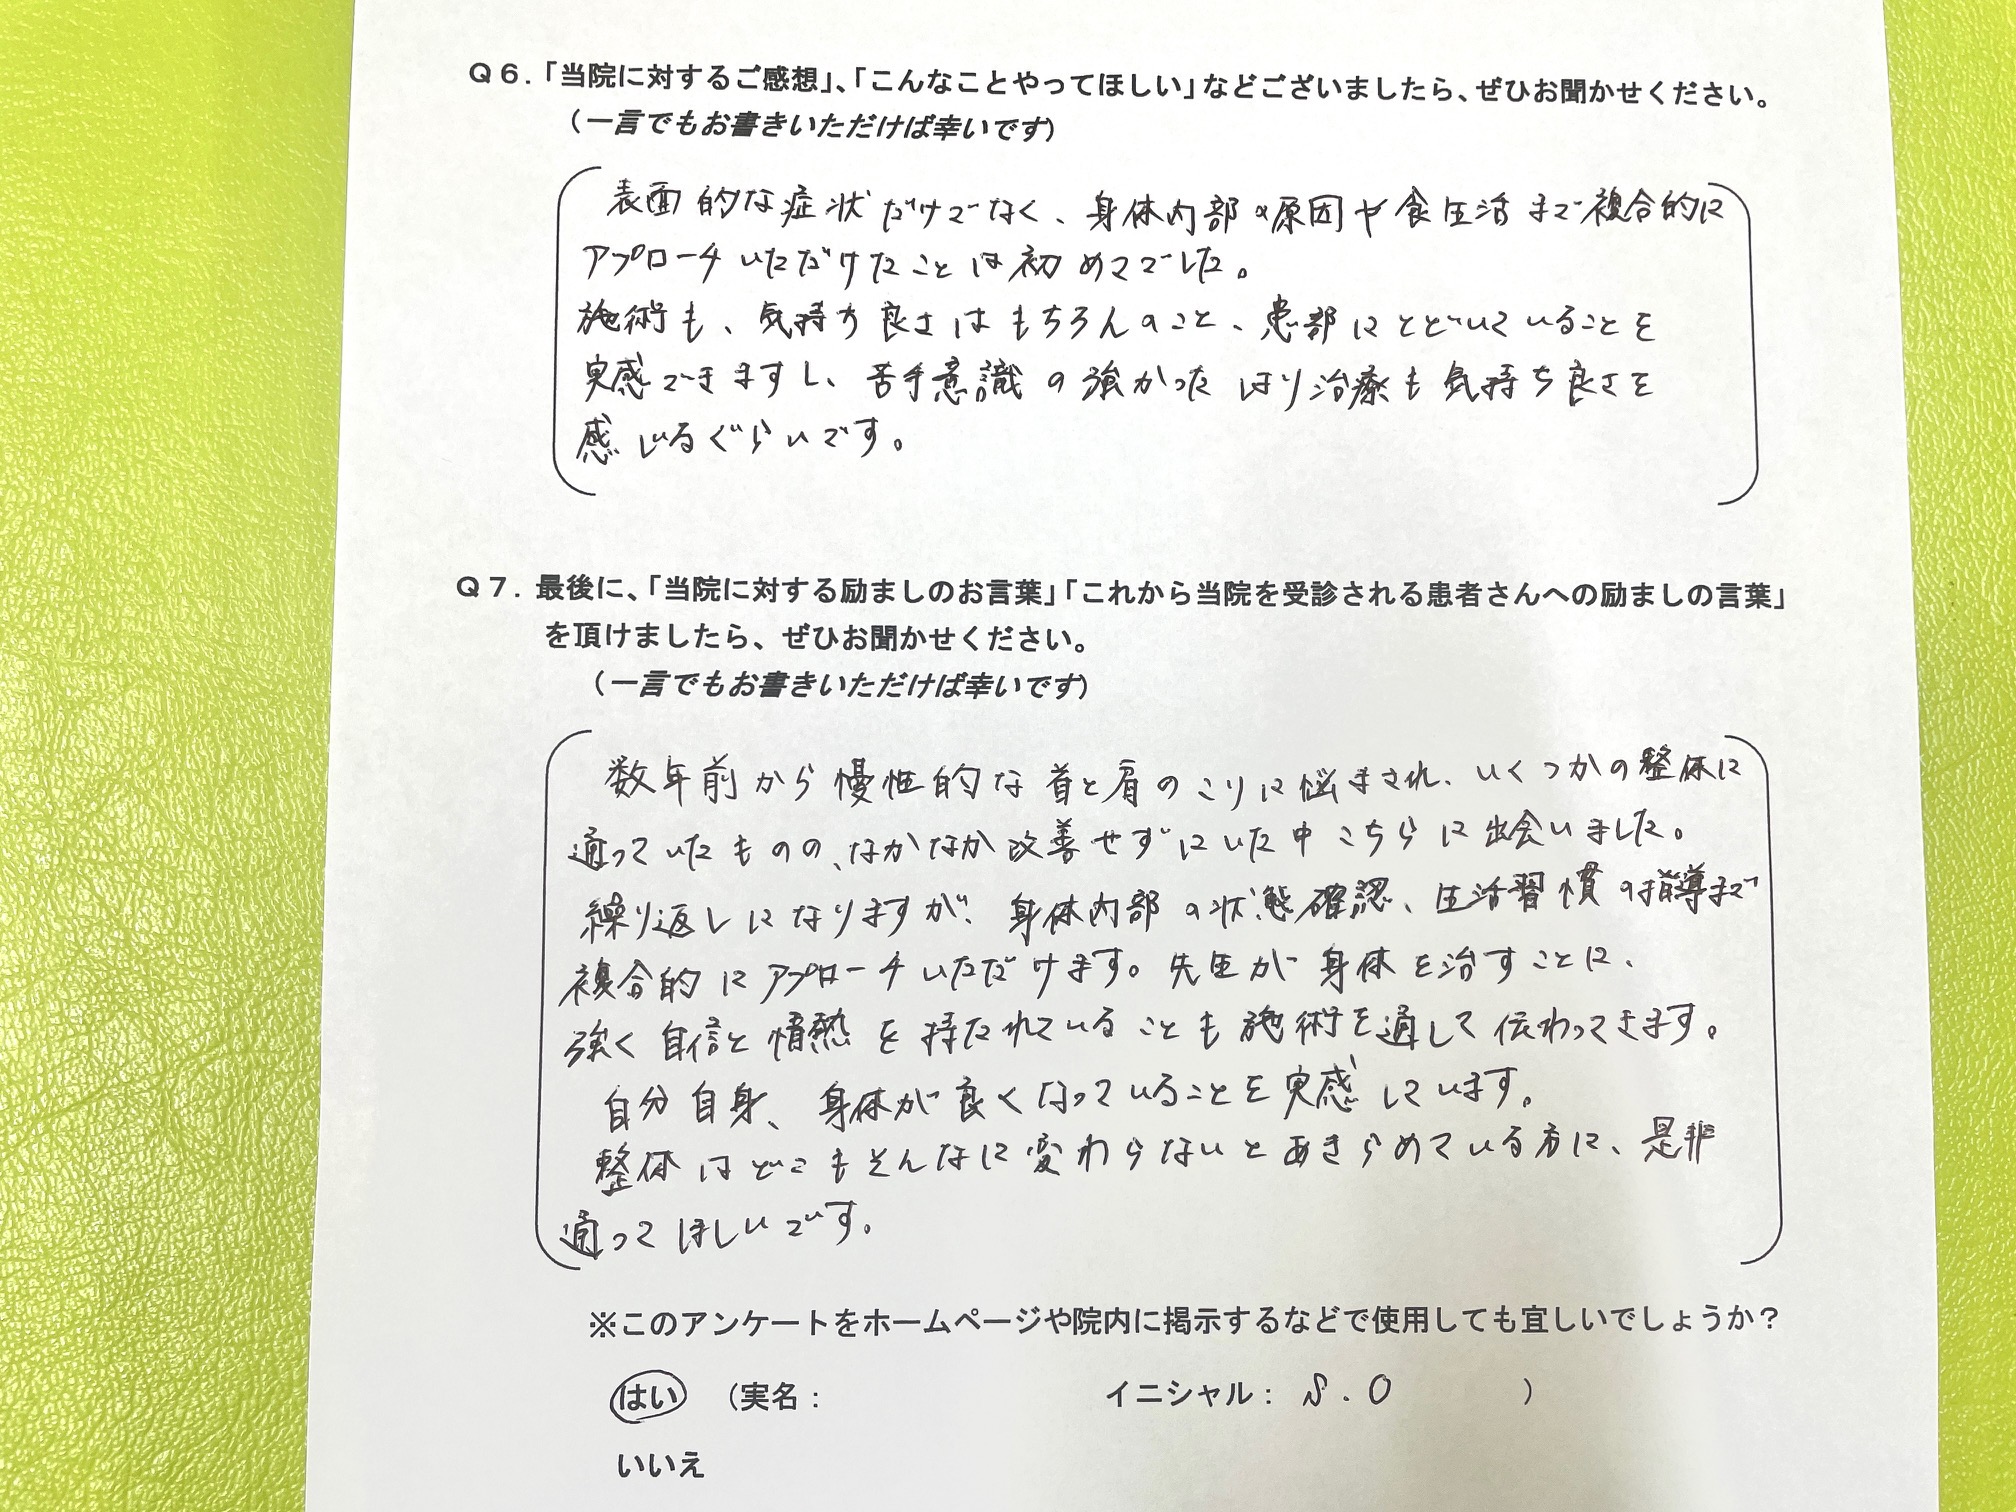 Q6.「当院に対するご感想」、「こんなことやってほしい」などございましたら、ぜひお聞かせください。
(一言でもお書きいただけば幸いです)
表面的な症状だけでなく、身体内部の原因や食生活まで複合的に
アプローチいただけたことは初めてでした。
施術も、気持ち良さはもちろんのこと、患部にとどいていることを
実感できますし、苦手意識の強かったはり治療も気持ち良さを
感じるぐらいです。
Q7.最後に、「当院に対する励ましのお言葉」「これから当院を受診される患者さんへの励ましの言葉」
を頂けましたら、ぜひお聞かせください。
(一言でもお書きいただけば幸いです)
数年前から慢性的な首と肩のこりに悩まされ、いくつかの整体に
通っていたものの、なかなか改善せずにいた中こちらに出会いました。
繰り返しになりますが、身体内部の状態確認、生活習慣の指導まで
複合的にアプローチいただけます。先生が身体を治すことに、
強く自信と情熱を持たれていることも施術を通して伝わってきます。
自分自身、身体が良くなっていることを実感しています。
整体はどこもそんなに変わらないとあきらめている方に、是非
通ってほしいです。
※このアンケートをホームページや院内に掲示するなどで使用しても宜しいでしょうか?
はい (実名: イニシャル: S.O )
いいえ